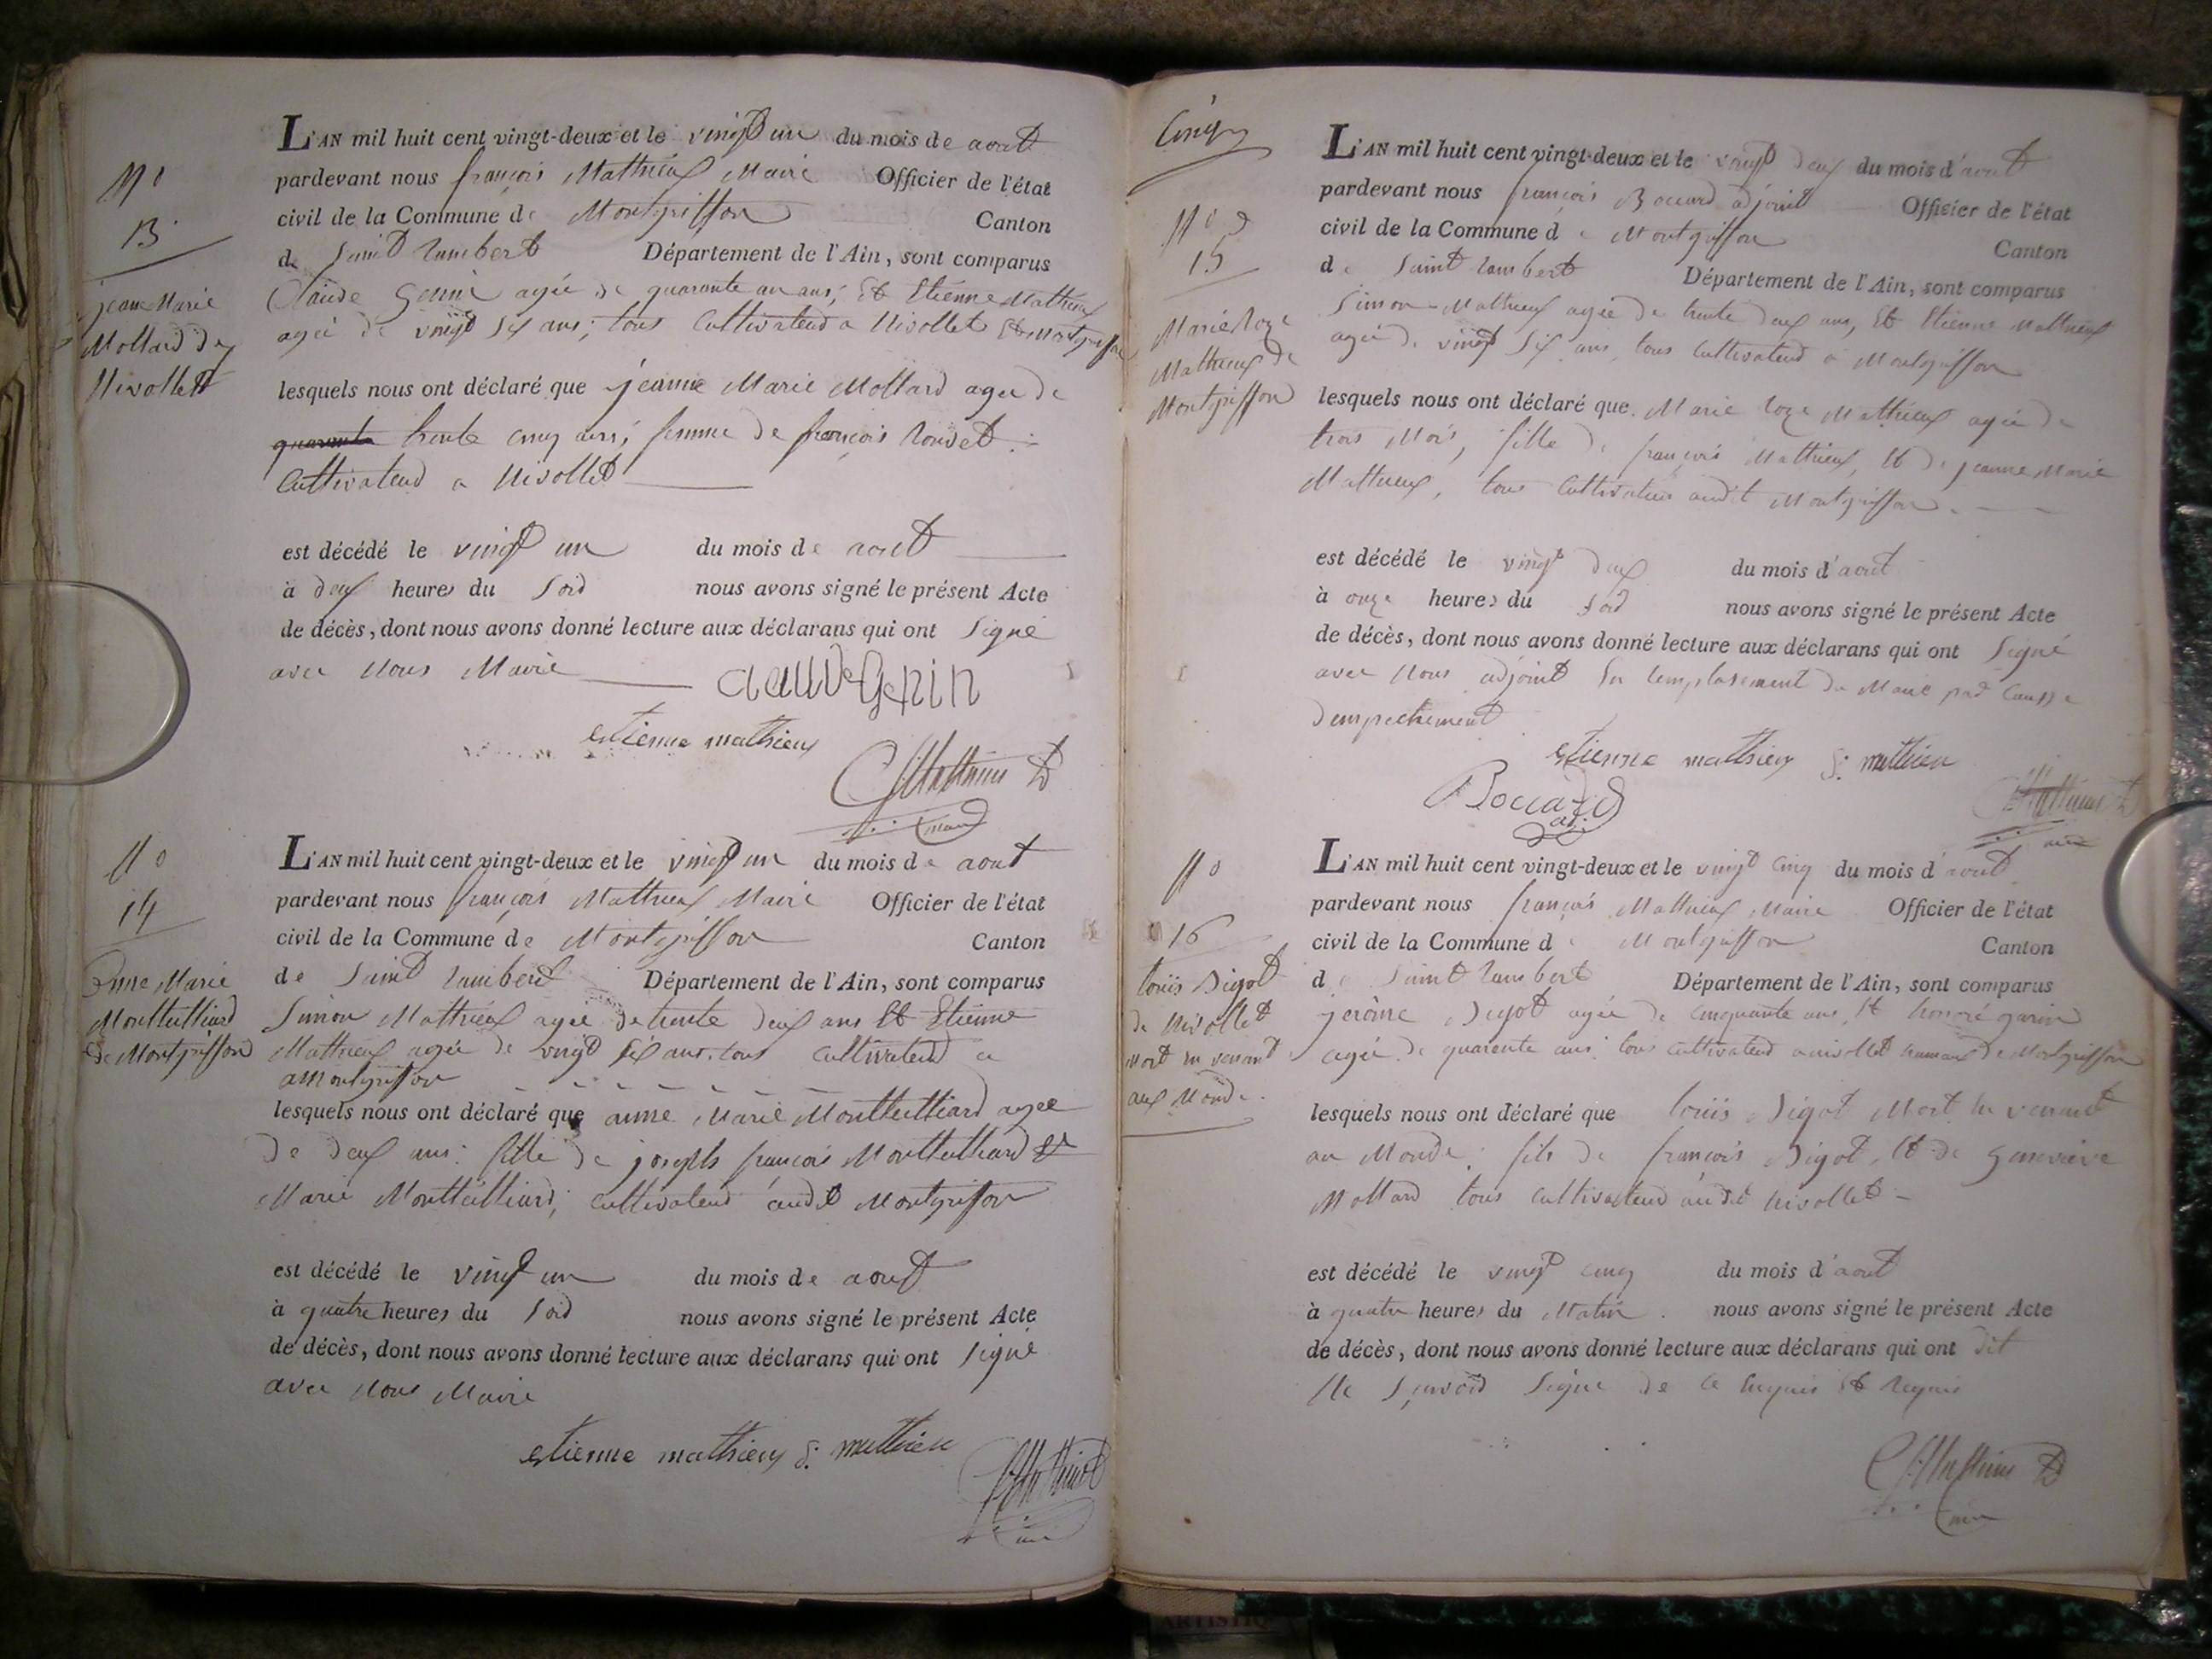 N°
13.
jeanne Marie
Mollard de
Nivollet
L'AN mil huit cent vingt-deux et le vingt un du mois de aout
pardevant nous françois Mathieux Maire Officier de l'état
civil de la Commune de Montgriffon Canton
de Saint Rambert Département de l'Ain, sont comparus
Claude Genin agée de quarante un ans, Et Etienne Mathieux
agée de vingt six ans; tous Cultivateur a Nivollet Et Montgriffon
lesquels nous ont déclaré que jeanne Marie Mollard agee de
quarante trente cinq ans; femme de françois Rondet
Cultivateur a Nivollet
est décédé le vingt un du mois de aout
à deux heures du Soir nous avons signé le présent Acte
de décès, dont nous avons donné lecture aux déclarans qui ont Signé
avec Nous Maire
claude Genin
estienne mathieux
Mathieux
N°
14
Anne Marie
Montteilliard
de Montgriffon
L'AN mil huit cent vingt-deux et le vingt un du mois de aout
pardevant nous françois Mathieux Maire Officier de l'état
civil de la Commune de Montgriffon Canton
de Saint Rambert Département de l'Ain, sont comparus
Simon Mathieux agée de trente deux ans Et Etienne
Mathieux agée de vingt six ans. tous cultivateur a
a Montgriffon
lesquels nous ont déclaré que anne Marie Montteilliard agee
de deux ans. fille de joseph françois Montteilliard Et
Marie Montteilliard; cultivateur audit Montgriffon
est décédé le vingt un du mois de aout
à quatre heures du Soir nous avons signé le présent Acte
de décès, dont nous avons donné lecture aux déclarans qui ont Signé
avec Nous Maire
estienne mathieux S: mathieu
Mathieux
Cinq
N°
15
Marie Roze
Mathieux de
Montgriffon
L'AN mil huit cent vingt-deux et le vingt deux du mois d'aout
pardevant nous françois Boccard adjoint Officier de l'état
civil de la Commune de Montgriffon Canton
de Saint Rambert Département de l'Ain, sont comparus
Simon Mathieux agée de trente deux ans, Et Etienne Mathieux
agée de vingt six ans tous cultivateur a Montgriffon
lesquels nous ont déclaré que Marie Roze Mathieux agée de
trois Mois, fille de françois Mathieux, Et de jeanne Marie
Mathieux, tous Cultivateur audit Montgriffon.
est décédé le vingt deux du mois d'aout
à onze heures du Soir nous avons signé le présent Acte
de décès, dont nous avons donné lecture aux déclarans qui ont Signé
avec Nous adjoint En remplasement du Maire par Causse
d'empechement
estienne mathieux S: mathieu
Boccard
adj.
N°
16
louis Bigot
de Nivollet
Mort en venant
aux Monde.
L'AN mil huit cent vingt-deux et le vingt cinq du mois d'aout
pardevant nous françois Mathieux Maire Officier de l'état
civil de la Commune de Montgriffon Canton
de Saint Rambert Département de l'Ain, sont comparus
jerôme Bigot agée de cinquante ans, Et honoré garin
agée de quarente ans. tous cultivateur a nivollet hameau de Montgriffon
lesquels nous ont déclaré que louis Bigot Mort en venant
au Monde. fils de françois Bigot, Et de Genevieve
Mollard tous cultivateur audit Nivollet
est décédé le vingt cinq du mois d'aout
à quatre heures du Matin nous avons signé le présent Acte
de décès, dont nous avons donné lecture aux déclarans qui ont dit
Ne Sçavoir Signe de ce Enquis Et Requis
Mathieux